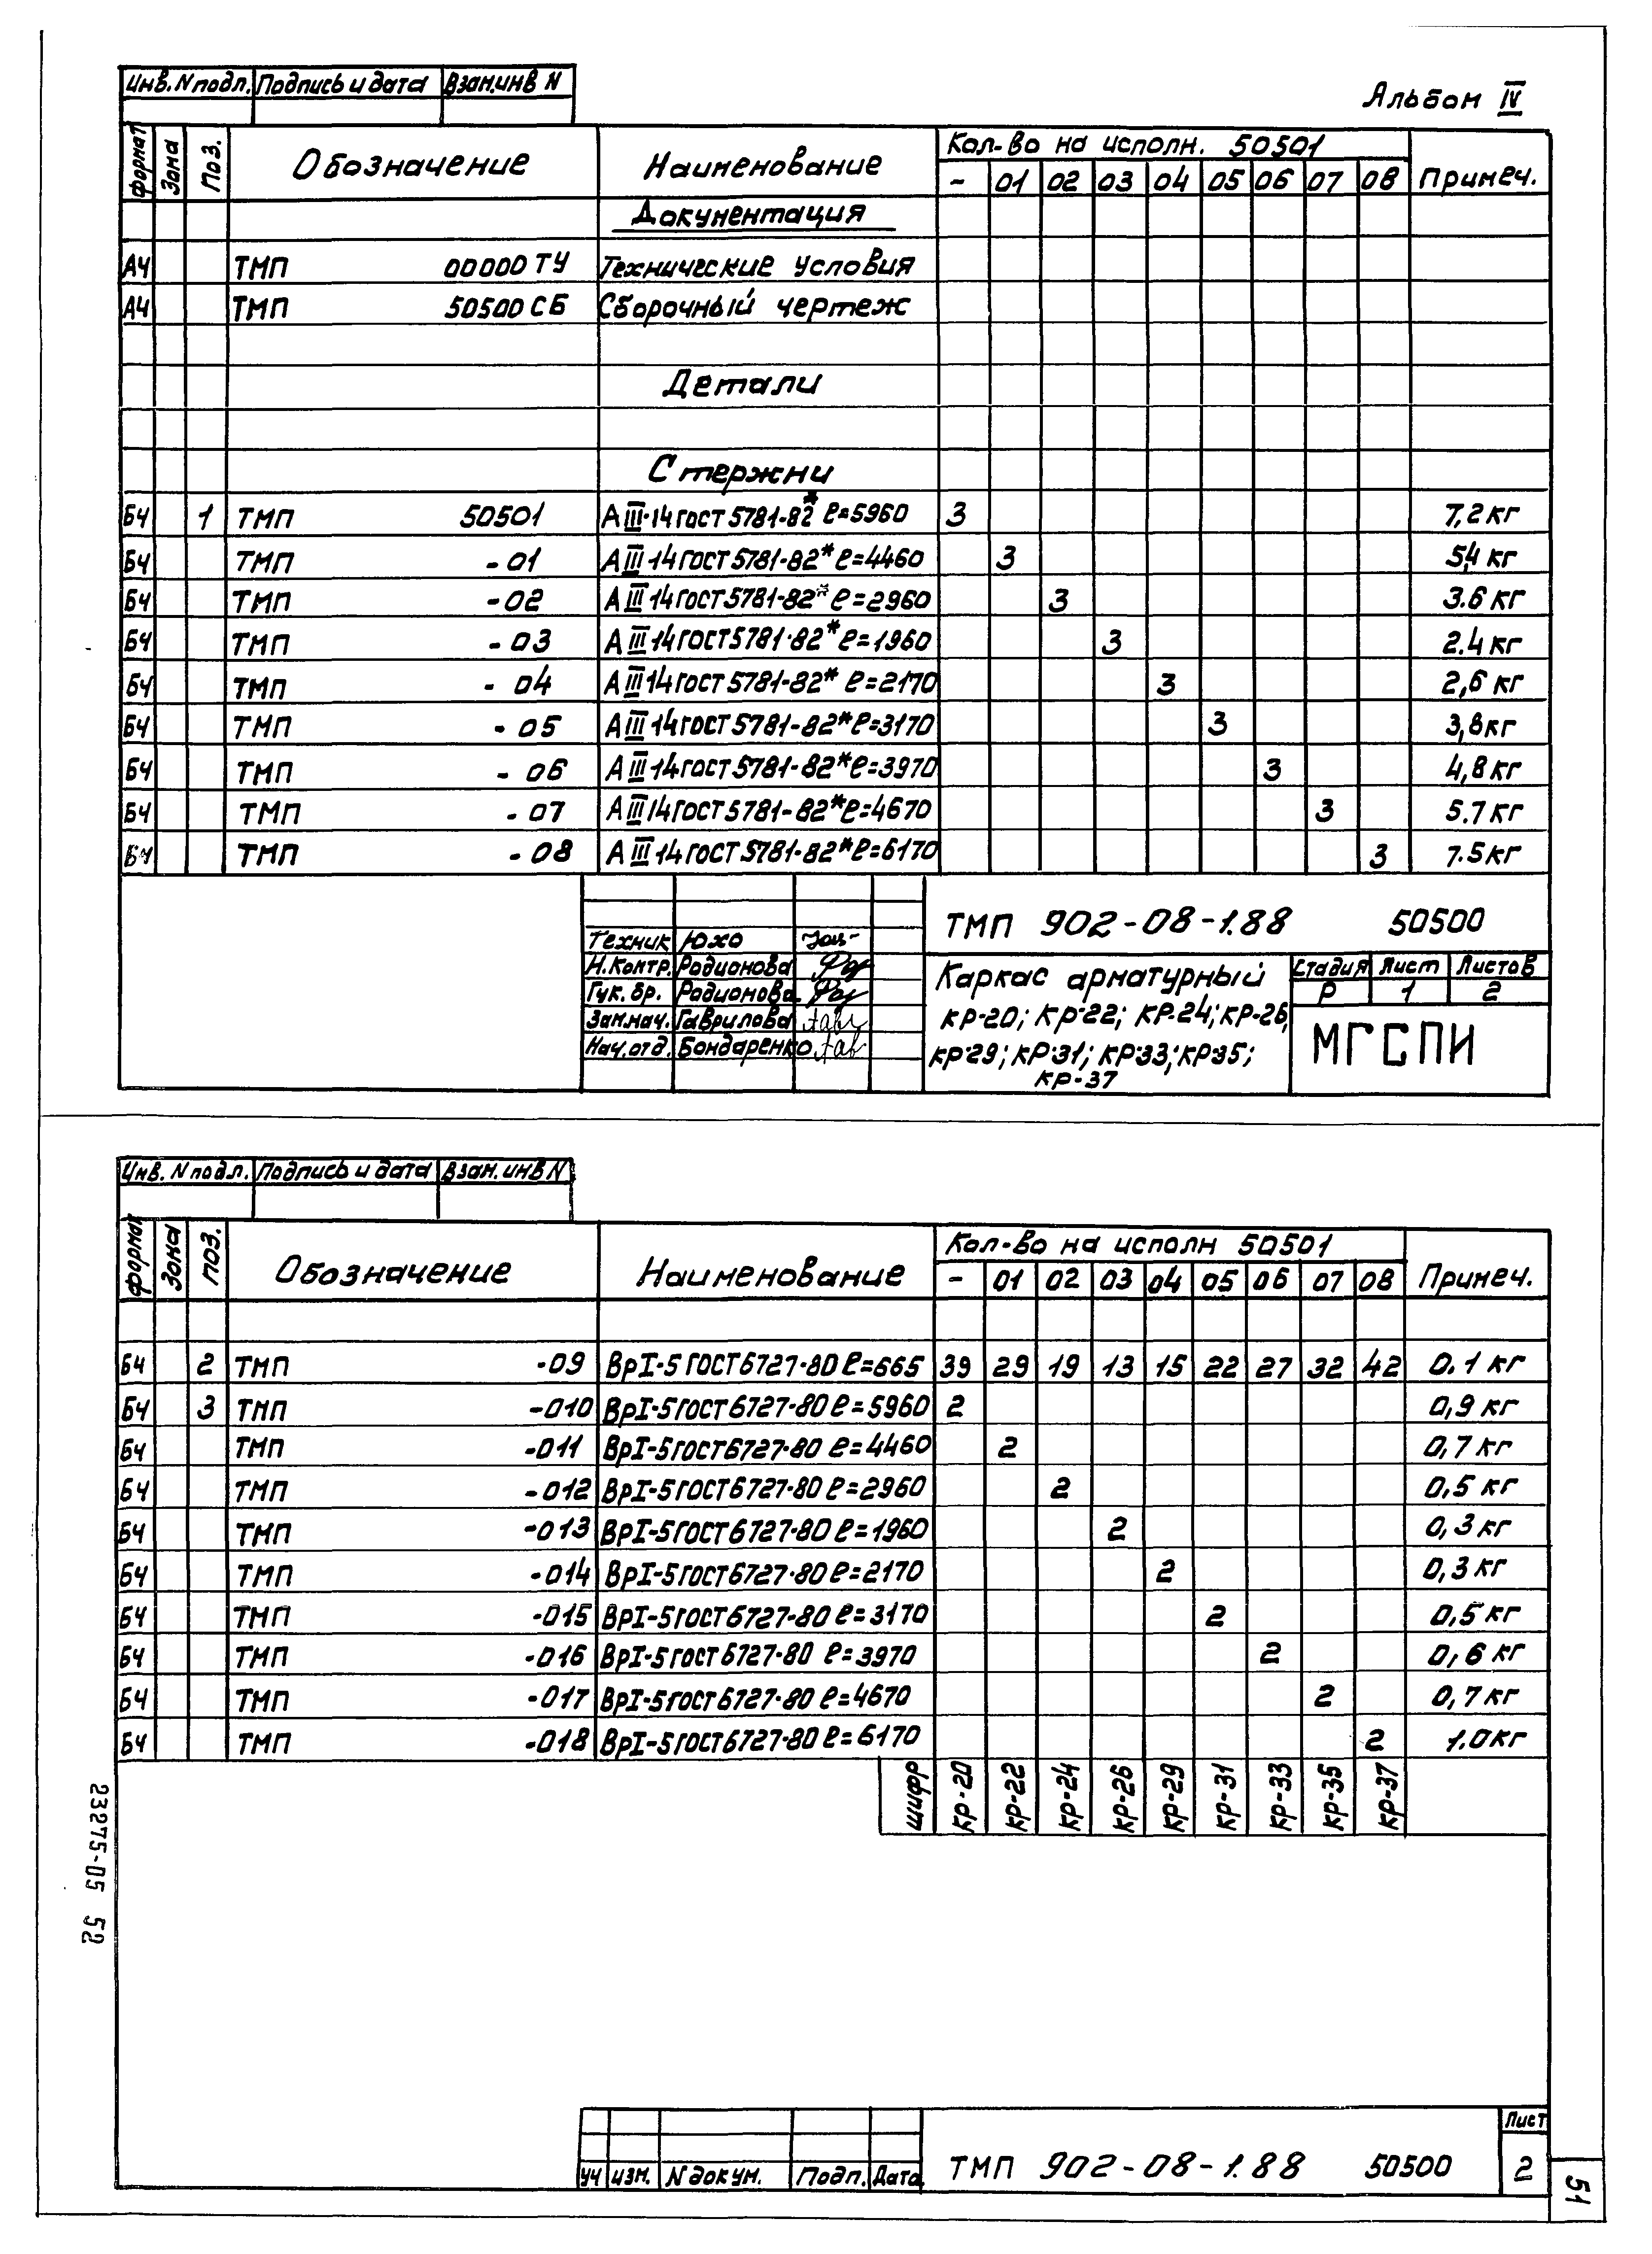 Инв. N подл. Подпись и дата Взам.инв N
Альбом IV
формат Зона Поз. Обозначение Наименование Кол-во на исполн. 50501 Примеч.
- 01 02 03 04 05 06 07 08
Документация
А4 ТМП 00000 ТУ Технические условия
А4 ТМП 50500 СБ Сборочный чертеж
Детали
Стержни
БЧ 1 ТМП 50501 А III-14 ГОСТ 5781-82* ℓ=5960 3 7,2 кг
БЧ ТМП -01 А III-14 ГОСТ 5781-82* ℓ=4460 3 5,4 кг
БЧ ТМП -02 А III-14 ГОСТ 5781-82* ℓ=2960 3 3.6 кг
БЧ ТМП -03 А III-14 ГОСТ 5781-82* ℓ=1960 3 2.4 кг
БЧ ТМП -04 А III-14 ГОСТ 5781-82* ℓ=2170 3 2,6 кг
БЧ ТМП -05 А III-14 ГОСТ 5781-82* ℓ=3170 3 3,8 кг
БЧ ТМП -06 А III-14 ГОСТ 5781-82* ℓ=3970 3 4,8 кг
БЧ ТМП -07 А III 14 ГОСТ 5781-82* ℓ=4670 3 5.7 кг
БЧ ТМП -08 А III-14 ГОСТ 5781-82* ℓ=6170 3 7.5 кг
ТМП 902-08-1.88 50500
Техник Юхо
Н.Контр. Родионова
Рук. бр. Родионова
Зам.нач. Гаврилова
Нач.отд. Бондаренко
Каркас арматурный
КР-20; КР-22; КР-24; КР-26;
КР-29; КР-31; КР-33; КР-35;
КР-37
Стадия Лист Листов
Р 1 2
МГСПИ
Инв. N подл. Подпись и дата Взам. инв N
формат Зона ПОЗ. Обозначение Наименование Кол-во на исполн 50501 Примеч.
- 01 02 03 04 05 06 07 08
БЧ 2 ТМП -09 ВрI-5 ГОСТ 6727-80 ℓ=665 39 29 19 13 15 22 27 32 42 0.1 кг
БЧ 3 ТМП -010 ВрI-5 ГОСТ 6727-80 ℓ=5960 2 0,9 кг
БЧ ТМП -011 ВрI-5 ГОСТ 6727-80 ℓ=4460 2 0,7 кг
БЧ ТМП -012 ВрI-5 ГОСТ 6727-80 ℓ=2960 2 0,5 кг
БЧ ТМП -013 ВрI-5 ГОСТ 6727-80 ℓ=1960 2 0,3 кг
БЧ ТМП -014 ВрI-5 ГОСТ 6727-80 ℓ=2170 2 0,3 кг
БЧ ТМП -015 ВрI-5 ГОСТ 6727-80 ℓ=3170 2 0,5 кг
БЧ ТМП -016 ВрI-5 ГОСТ 6727-80 ℓ=3970 2 0,6 кг
БЧ ТМП -017 ВрI-5 ГОСТ 6727-80 ℓ=4670 2 0,7 кг
БЧ ТМП -018 ВрI-5 ГОСТ 6727-80 ℓ=6170 2 1.0 кг
шифр КР-20 КР-22 КР-24 КР-26 КР-29 КР-31 КР-33 КР-35 КР-37
23275-05 52
уч изм. N докум. Подп. Дата
ТМП 902-08-1.88 50500
Лист
2
51